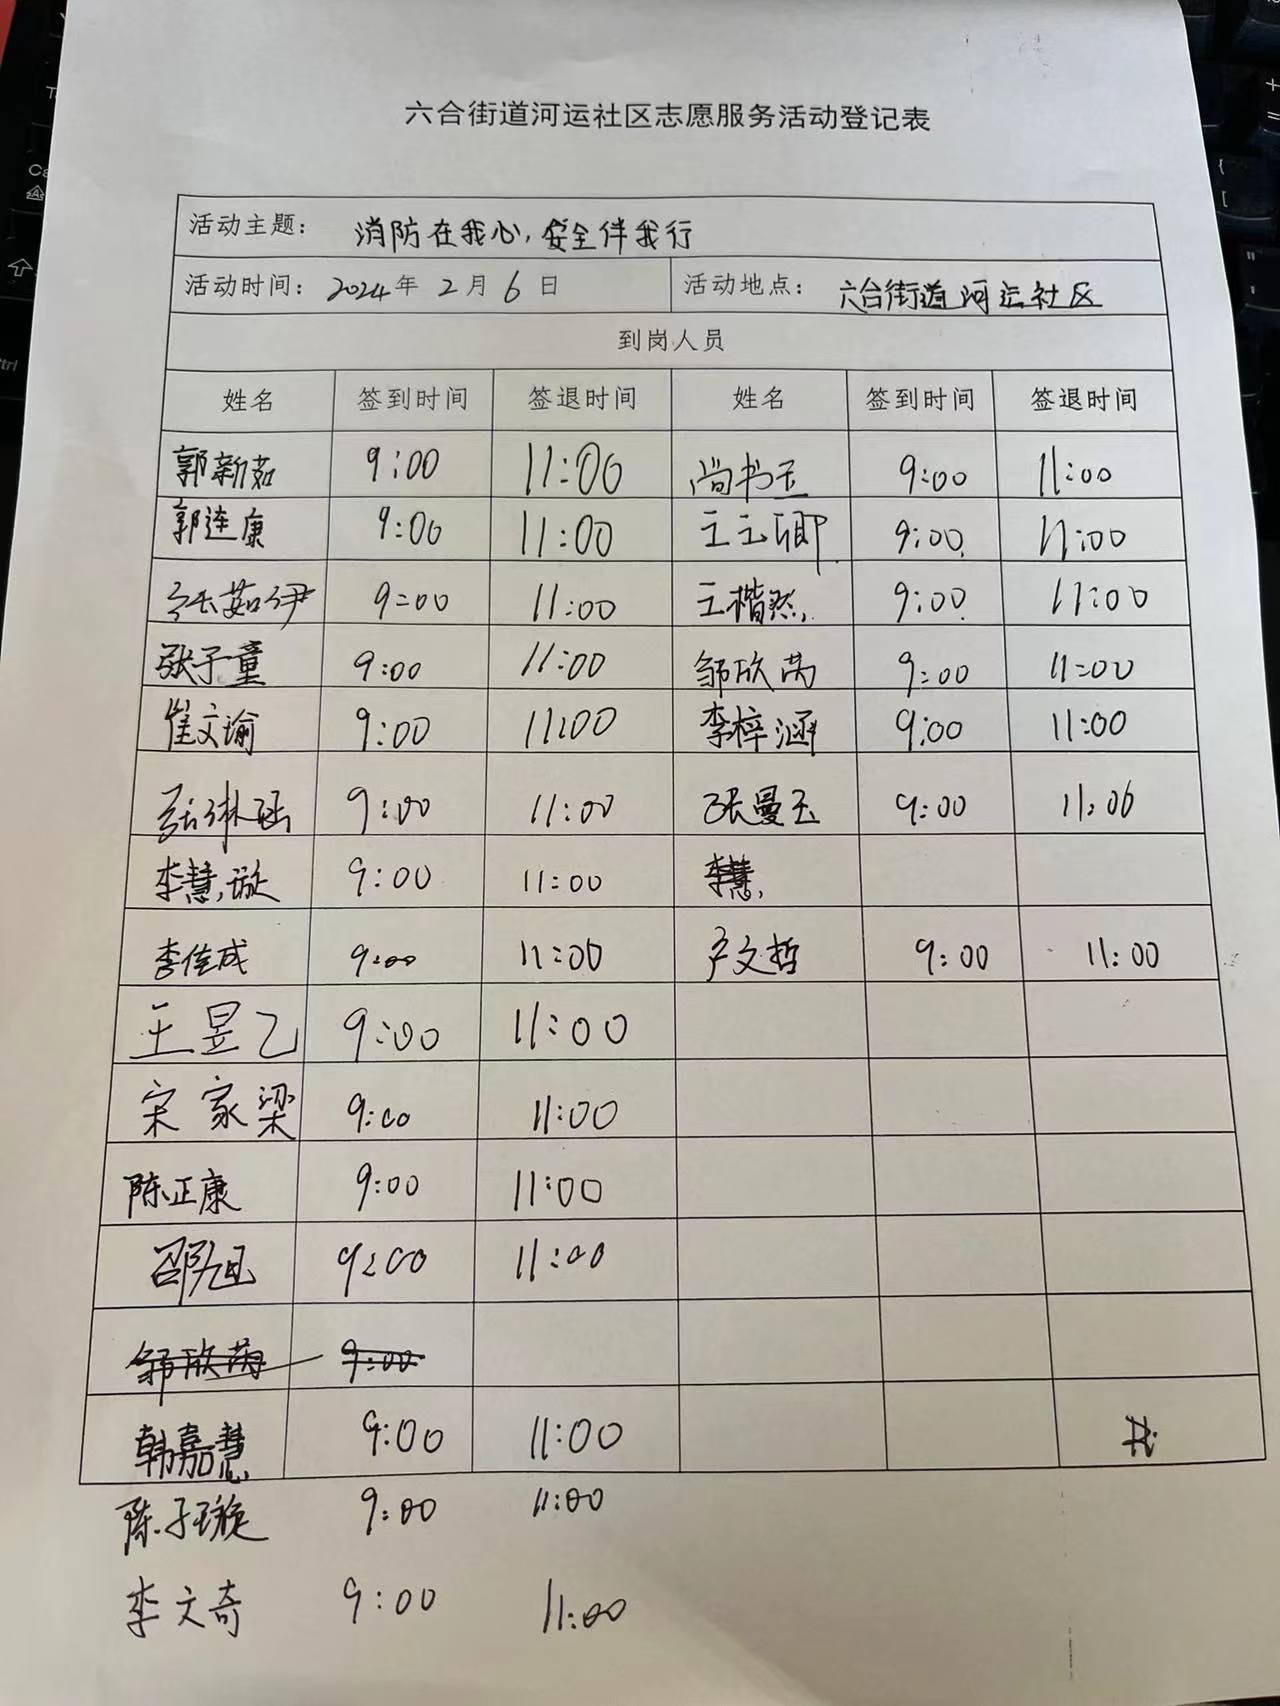 六合街道河运社区志愿服务活动登记表
活动主题： 消防在我心,安全伴我行
活动时间： 2024年 2月 6日 活动地点： 六合街道河运社区
到岗人员
姓名 签到时间 签退时间 姓名 签到时间 签退时间
郭新茹 9:00 11:00 尚书玉 9:00 11:00
郭连康 9:00 11:00 王玉卿 9:00 11:00
张茹伊 9:00 11:00 王楷然 9:00 11:00
张子童 9:00 11:00 邹欣芮 9:00 11:00
崔文瑜 9:00 11:00 李梓涵 9:00 11:00
张琳 9:00 11:00 张曼玉 9:00 11:00
李慧璇 9:00 11:00 李慧
李佳成 9:00 11:00 卢文哲 9:00 11:00
王昱乙 9:00 11:00
宋家梁 9:00 11:00
陈正康 9:00 11:00
邵旭 9:00 11:00
邹欣芮 9:00
韩嘉慧 9:00 11:00
陈子璇 9:00 11:00
李文奇 9:00 11:00